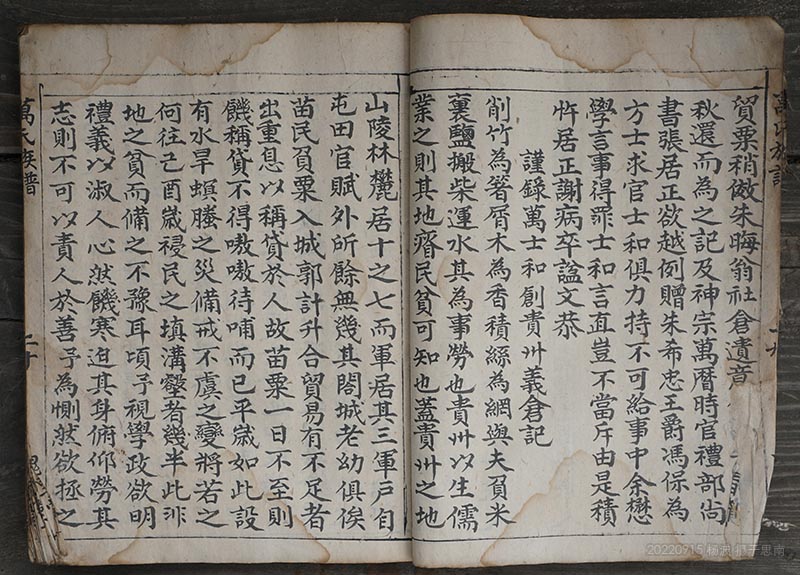 貿粟稍倣朱晦翁社倉遺音
秋還而為之記及神宗萬曆時官禮部尚
書張居正欲越例贈朱希忠王爵馮保為
方士求官士和俱力持不可給事中余懋
學言事得罪士和言直豈不當斥由是積
忤居正謝病卒諡文恭
謹錄萬士和創貴州義倉記
削竹為箸屑木為香積絲為網與夫負米
裹鹽搬柴運水其為事勞也貴州以生儒
業之則其地瘠民貧可知也蓋貴州之地
山陵林麓居十之七而軍居其三軍戶自
屯田官賦外所餘無幾其閤城老幼俱俟
苗民負粟入城郭計升合貿易有不足者
出重息以稱貸於人故苗粟一日不至則
饑稱貸不得嗷嗷待哺而已平歲如此設
有水旱螟螣之災備戒不虞之變將若之
何往己酉歲祲民之填溝壑者幾半此非
地之貧而備之不豫耳項予視學政欲明
禮義以淑人心然饑寒迫其身俯仰勞其
志則不可以責人於善予為惻然欲拯之
萬氏族譜
二十
20220915 楊波 郎于思南